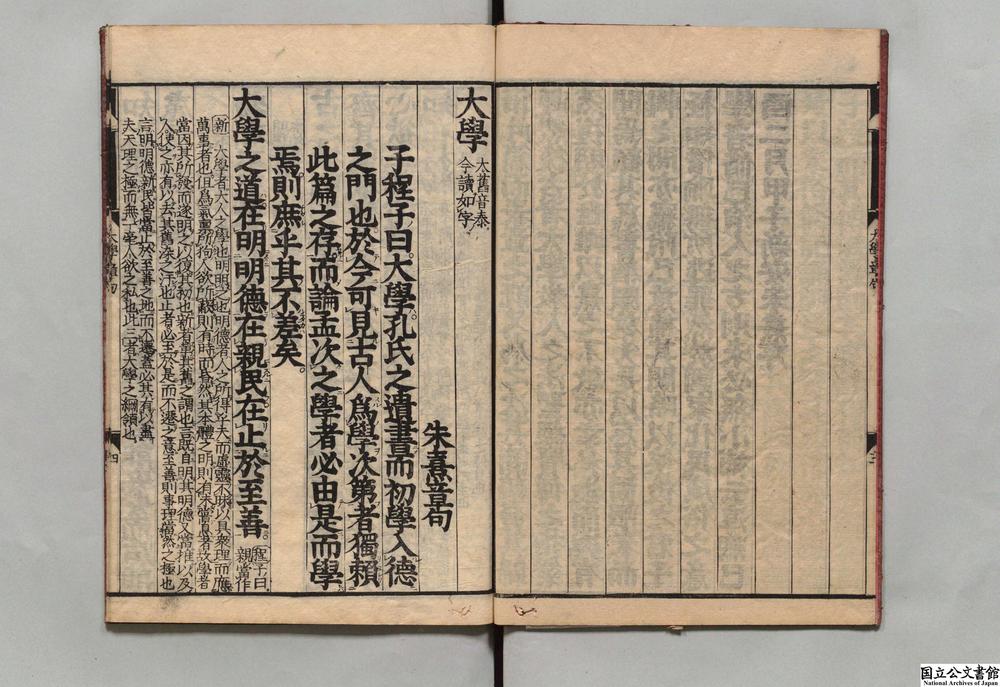 大學章句
三
大學
大舊音泰
今讀如字
朱熹章句
子程子曰。大學。孔氏之遺書。而初學入德
之門也於今可見古人爲學次第者獨賴
此篇之存而論孟次之學者必由是而學
焉則庶乎其不差矣。
大學之道在明明德在親民在止於至善。
程子曰
親當作
新○大學者大人之學也明明之也明德者人之所得乎天而虛靈不昧以具衆理而應
萬事者也但爲氣稟所拘人欲所蔽則有時而昏然其本體之明則有未嘗息者故學者
當因其所發而遂明之以復其初也新者革其舊之謂也言既自明其明德又當推以及
人使之亦有以去其舊染之汙也止者必至於是而不遷之意至善則事理當然之極也
言明明德新民皆當止於至善之地而不遷蓋必其有以盡
夫天理之極而無一毫人欲之私也此三者大學之綱領也
大學章句
四
国立公文書館
National Archives of Japan